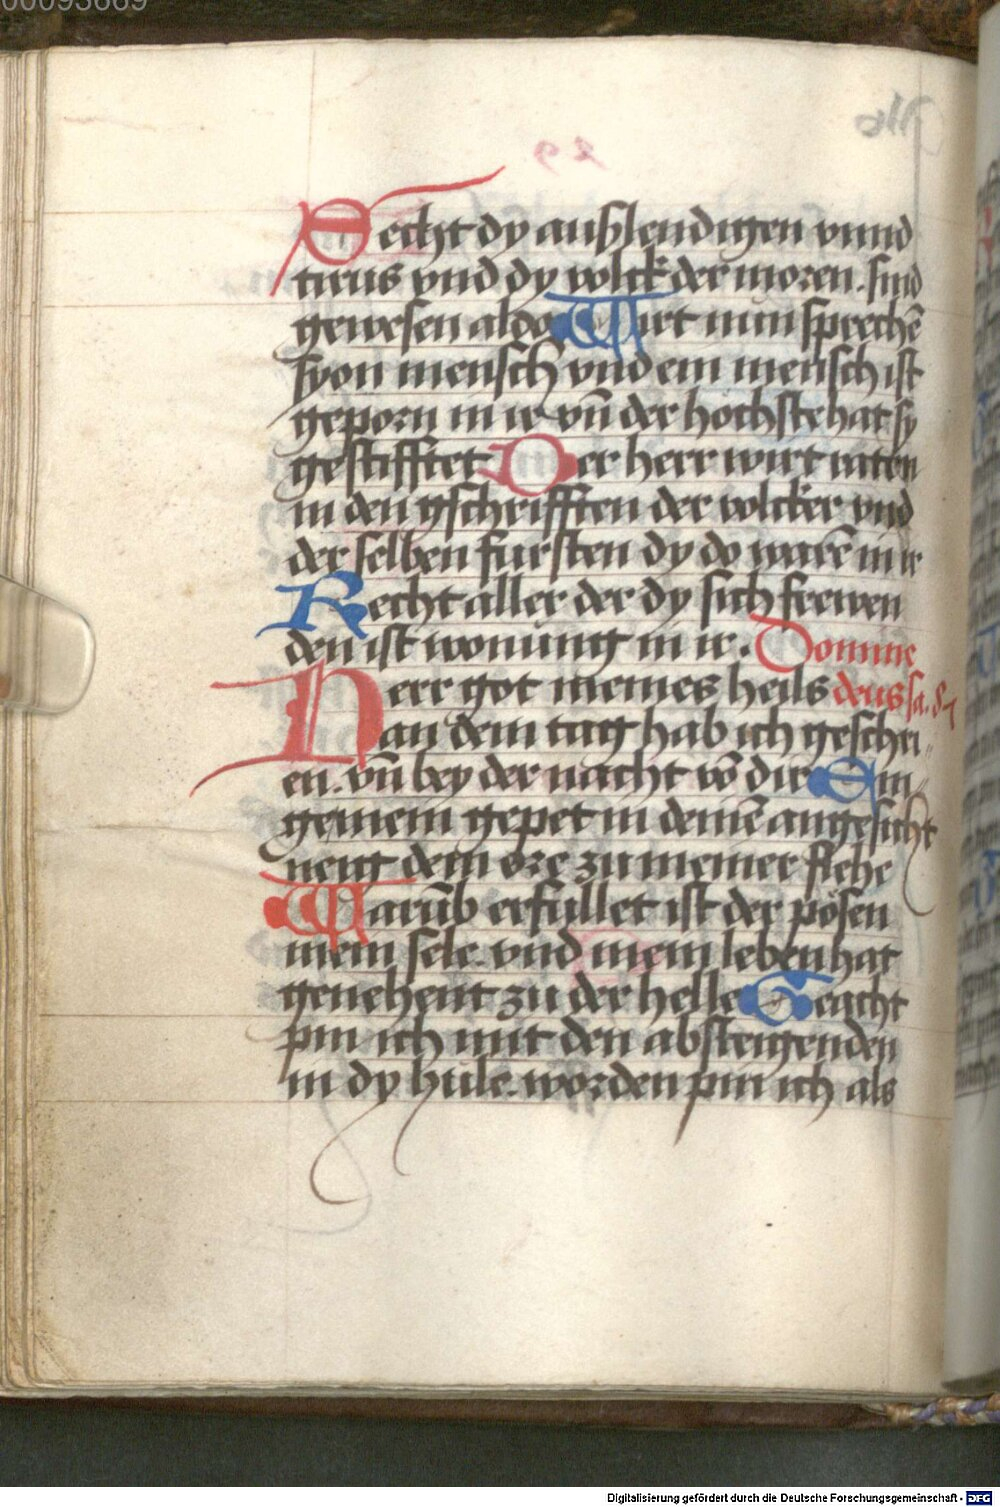 00093669
Secht dy auslendigen vnnd
tirus vnd dy volck der moren. sind
gewesen aldo Wirt nun sprechē
syon mensch vnd ein mensch ist
geporn in ir vn̄ der hochste hat sy
gestifftet Der herr wirt
in den gschrifften der volcker vnd
der selben fursten dy do warē in ir
Recht aller der dy sich frewen
den ist wonung in ir. Domine
Herr got meines heils deus sa. 87
an dem tag hab ich geschri
en. vn̄ bey der nacht vō dir Ein
gemein gepet in deinē angesicht
neyg dein ore zu meiner flehe
Warūb erfullet ist der pösen
mein sele. vnd mein leben hat
genehent zu der helle Geacht
pin ich mit den absteigenden
in dy hule. worden pin ich als
Digitalisierung gefördert durch die Deutsche Forschungsgemeinschaft - DFG